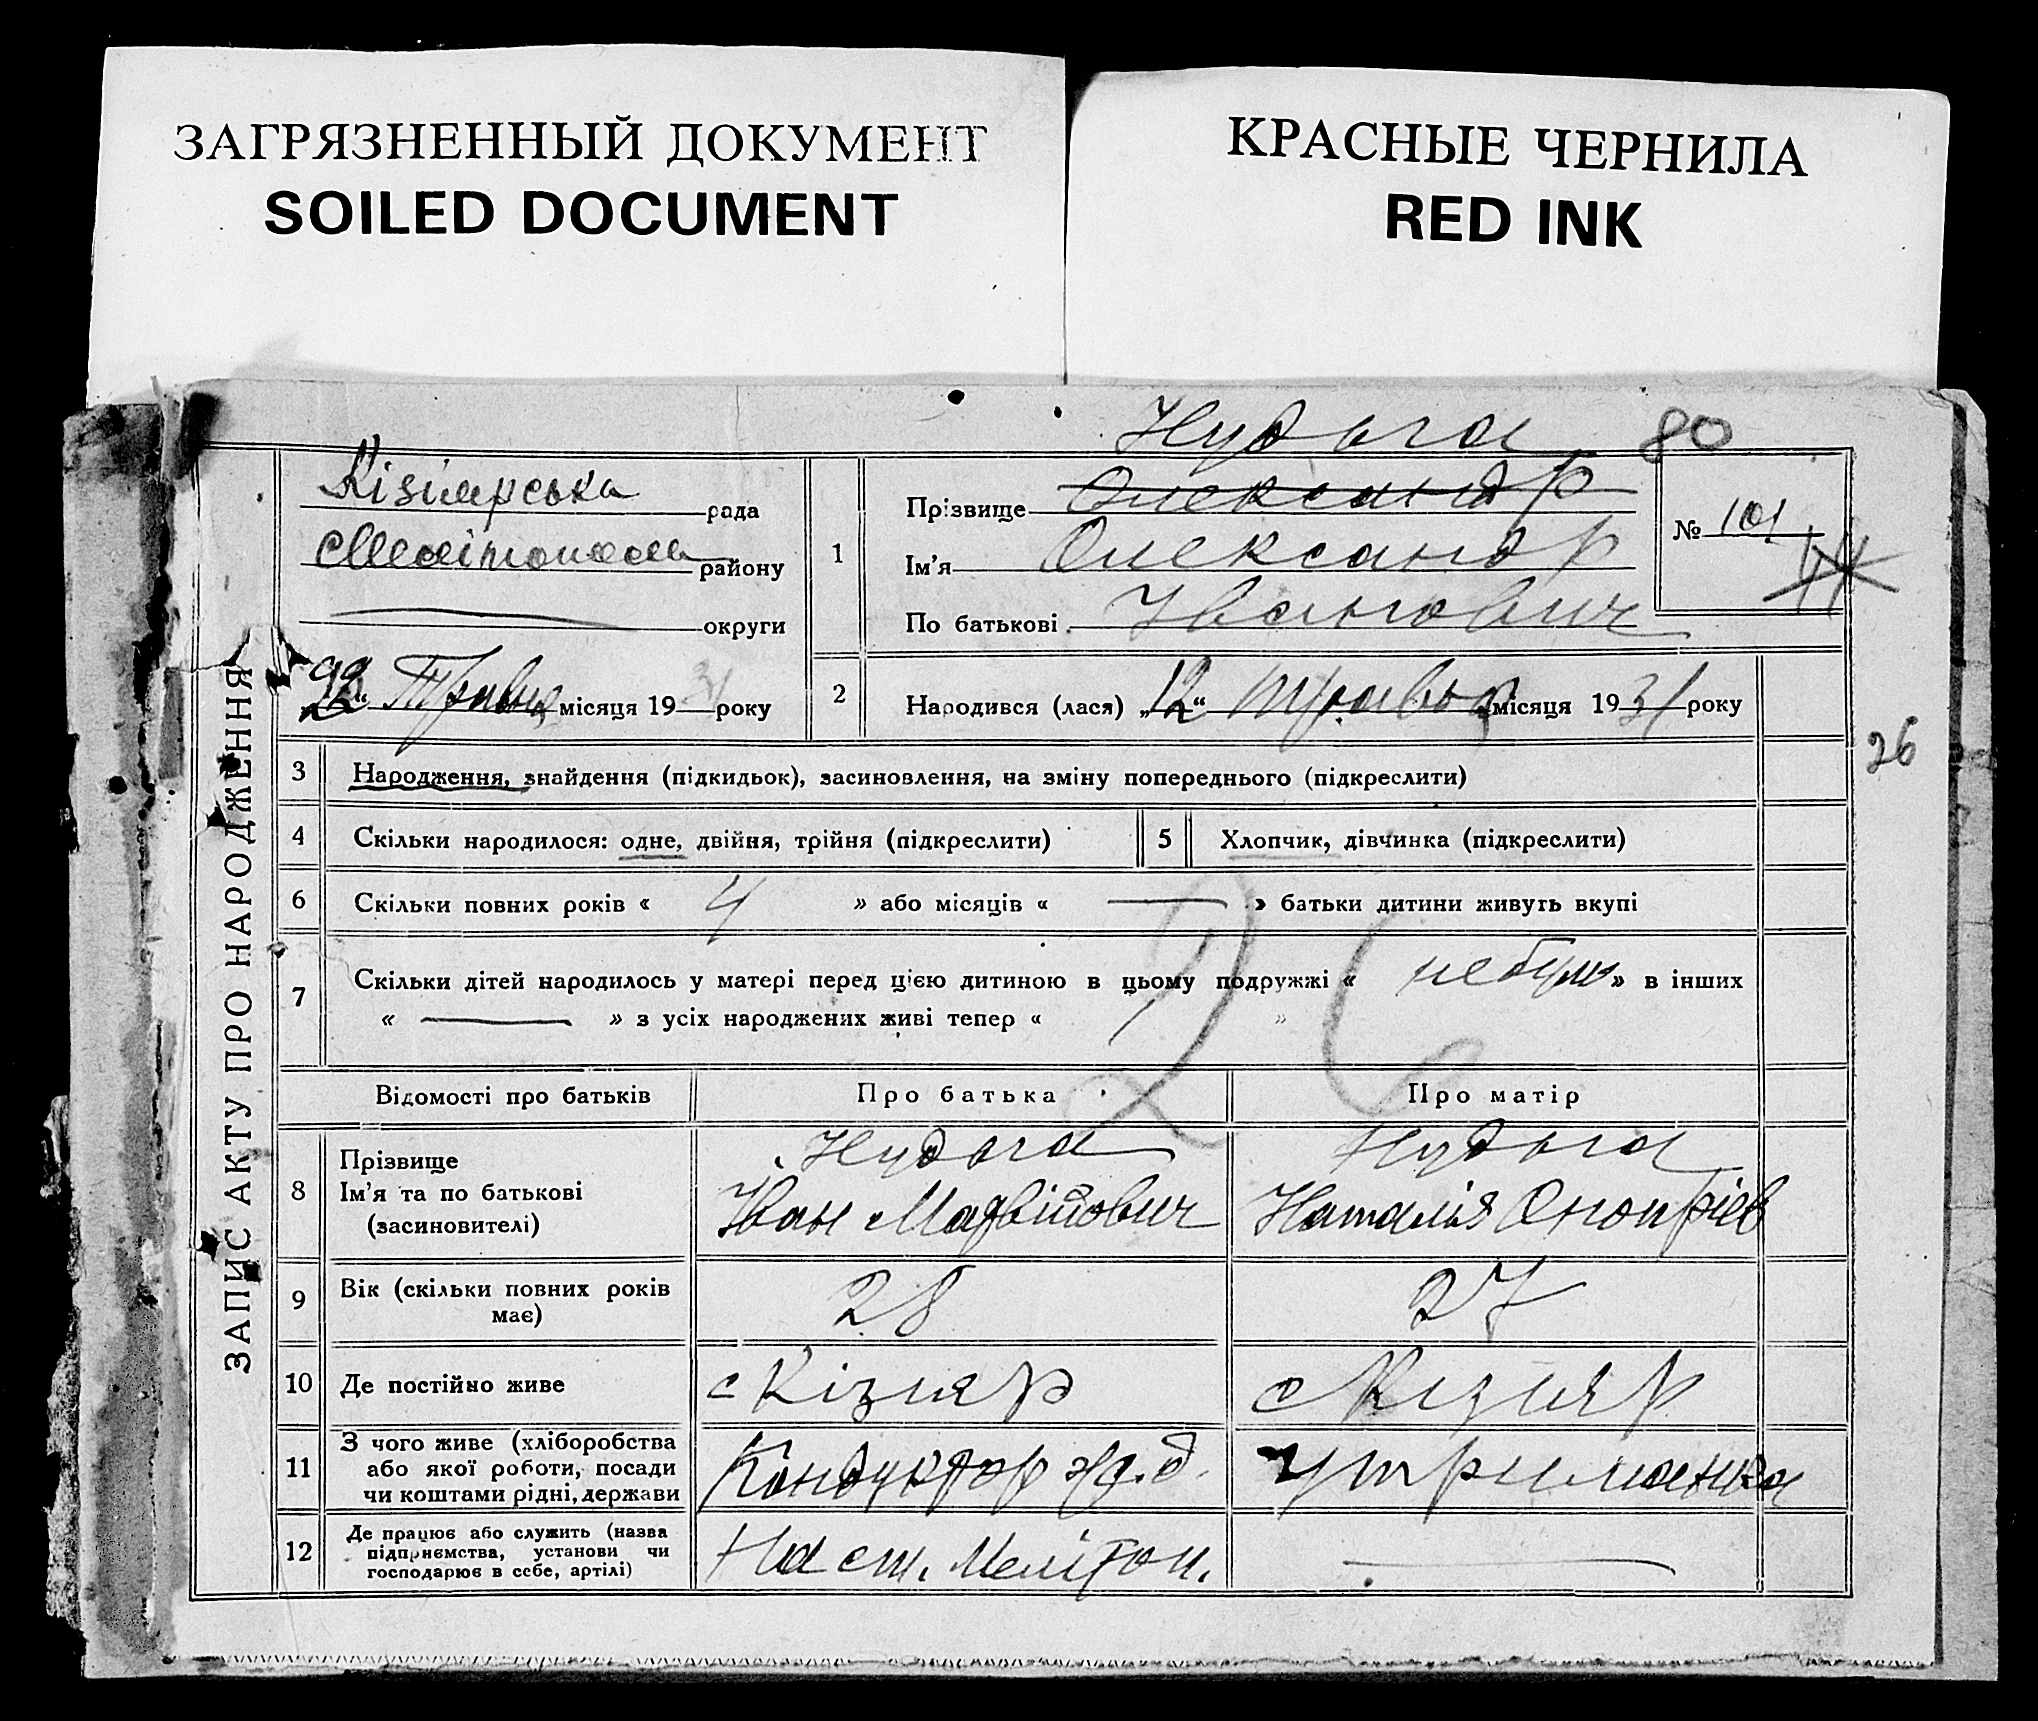 ЗАГРЯЗНЕННЫЙ ДОКУМЕНТ
SOILED DOCUMENT
КРАСНЫЕ ЧЕРНИЛА
RED INK
80
ЗАПИС АКТУ ПРО НАРОДЖЕННЯ
Кізіярська рада
району
округи
"22" Травня місяця 1931 року
1
Нудьга
Прізвище Олександр
Ім'я Олександр
По батькові Іванович
№ 101
2
Народився (лася) „12“ травня місяця 1931 року
26
3 Народження, знайдення (підкидьок), засиновлення, на зміну попереднього (підкреслити)
4 Скільки народилося: одне, двійня, трійня (підкреслити) 5 Хлопчик, дівчинка (підкреслити)
6 Скільки повних років « 4 » або місяців « — » батьки дитини живуть вкупі
7 Скільки дітей народилось у матері перед цією дитиною в цьому подружжі « небуло » в інших
« — » з усіх народжених живі тепер « »
26
Відомості про батьків Про батька Про матір
8 Прізвище Нудьга Нудьга
Ім'я та по батькові Іван Матвійович Наталія Онопрієв
(засиновителі)
9 Вік (скільки повних років має) 28 27
10 Де постійно живе с Кізияр с Кізияр
11 З чого живе (хліборобства
або якої роботи, посади
чи коштами рідні, держави
Кондуктор жд.д. Утриманка
12 Де працює або служить (назва
підприємства, установи чи
господарює в себе, артілі)
На ст. Мелітоп. —